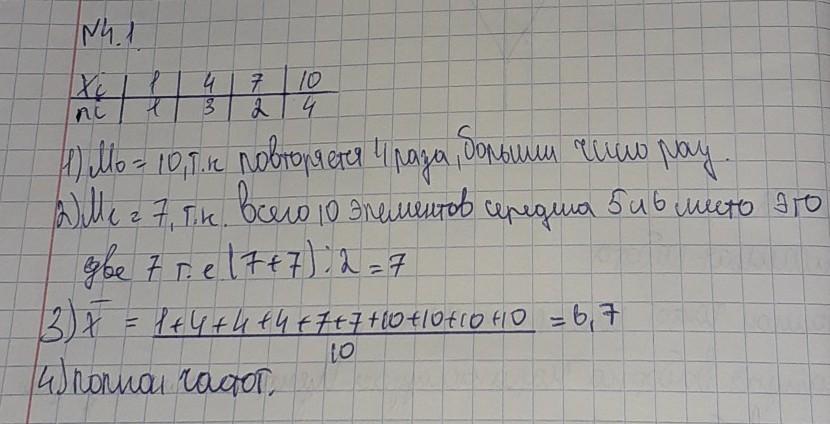 №4.1.
xi | 1 | 4 | 7 | 10
ni | 1 | 3 | 2 | 4
1) Mo = 10, т.к повторяется 4 раза, больши число раз.
2) Me = 7, т.к. всего 10 элементов середина 5 и 6 место это
две 7 т.е (7+7):2=7
3) x̄ = 1+4+4+4+7+7+10+10+10+10 = 6,7
10
4) полиг частот.